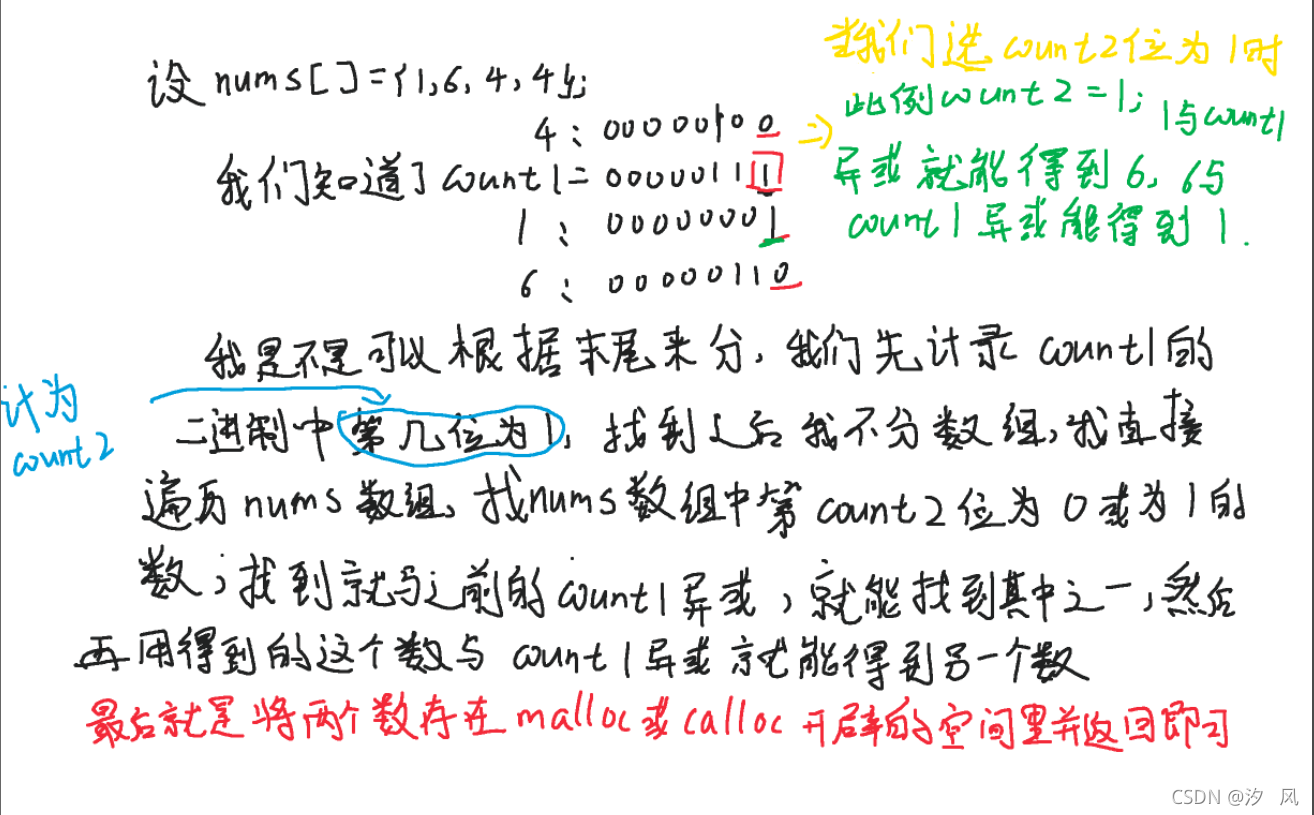 设 nums[]={1,6,4,4};
4：00000100
我们知道了count1=00000111
1：00000001
6：00000110
当我们选count2位为1时
此例count2=1；1与count1
异或就能得到6，6与
count1异或能得到1.
我是不是可以根据末尾来分，我们先计录count1的
计为
count2
二进制中第几位为1，找到之后我不分数组，我直接
遍历nums数组，找nums数组中第count2位为0或为1的
数；找到就与之前的count1异或，就能找到其中之一，然后
再用得到的这个数与count1异或就能得到另一个数
最后就是将两个数存在malloc或calloc开辟的空间里并返回即可
CSDN @汐 风